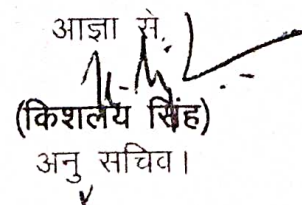 आज्ञा से,
(किशलय सिंह)
अनु सचिव।